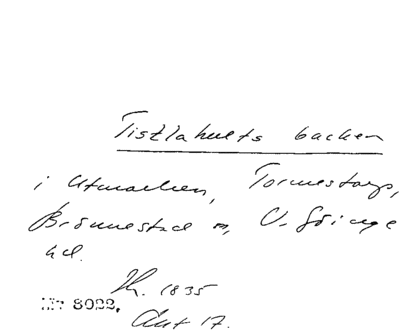 Tistlahults backen
i Utmarken, Tormestorp,
Brönnestad s, V. Göinge
hd.
Sk. 1835
Nr 8022.
Akt 17.